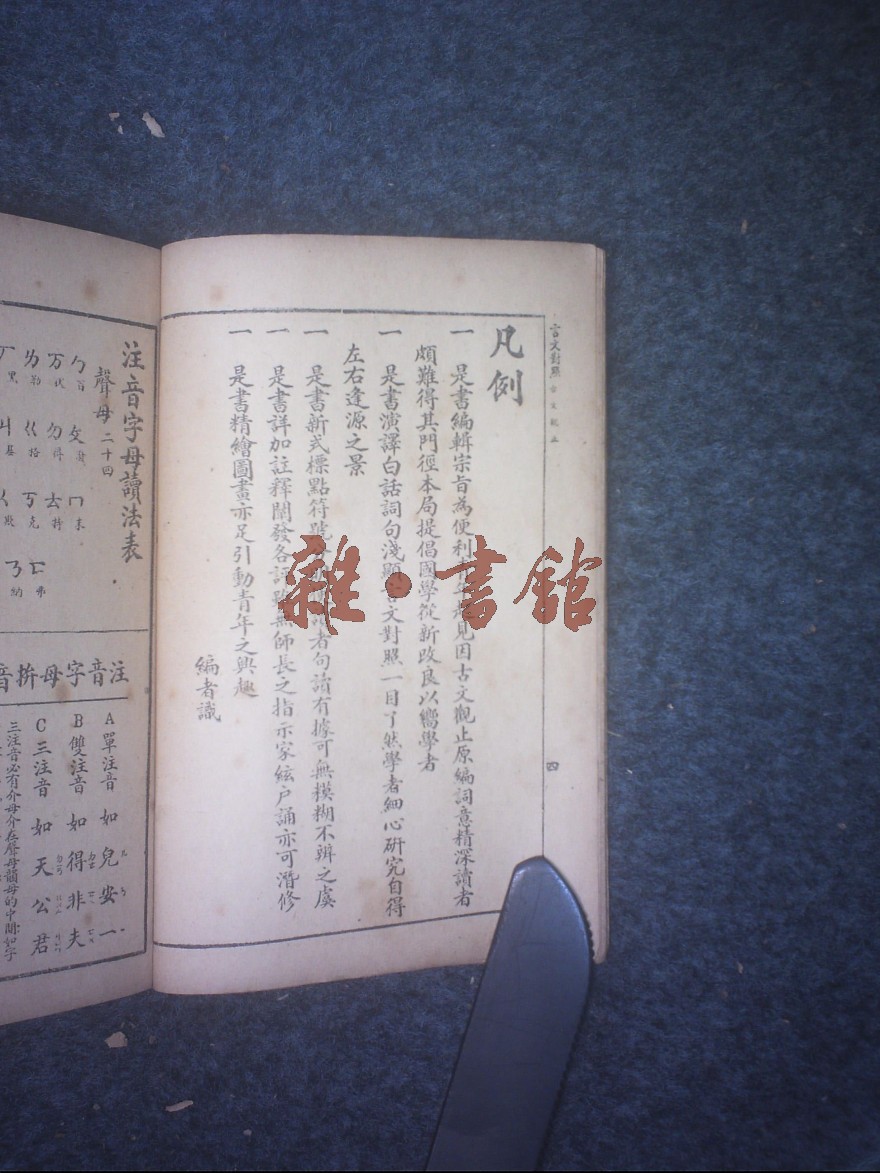 言文對照 古文觀止
凡例
一 是書編輯宗旨為便利 起見因古文觀止原編詞意精深讀者
頗難得其門徑本局提倡國學從新改良以嚮學者
一 是書演譯白話詞句淺顯言文對照一目了然學者細心研究自得
左右逢源之景
一 是書新式標點符號 者句讀有據可無模糊不辨之虞
一 是書詳加註釋闡發各 雖無師長之指示家絃户誦亦可潛修
一 是書精繪圖畫亦足引動青年之興趣
編者識
四
雜·書館
注音字母讀法表
聲母 二十四
ㄅ ㄆ ㄇ
万 ㄉ ㄊ
ㄌ ㄍ ㄎ ㄈ
ㄋ
注音字母拚音
A 單注音 如 兒 安 一
B 雙注音 如 得 非 夫
C 三注音 如 天 公 君
三注音必有介母介在聲母韻母的中間如字